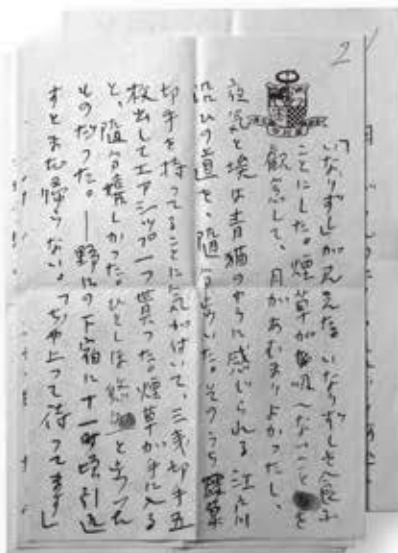 2
「いなりずし」が見えた。いなりずしを食ふ
ことにした。煙草が吸へないことを
観念して、月があむまりよかったし、
夜気と埃は青猫のやうに感じられる江戸川
沿ひの道を、随分歩いた。そのうち
切手を持ってることに気がついて、三銭切手五
枚出してエアシップ一つ買った。煙草が手に入る
と、随分嬉しかった。ひとしほ と歩いた
ものだった。―野 の下宿に十一時頃引返
すとまだ帰らない。「ぢや上って待ってます」